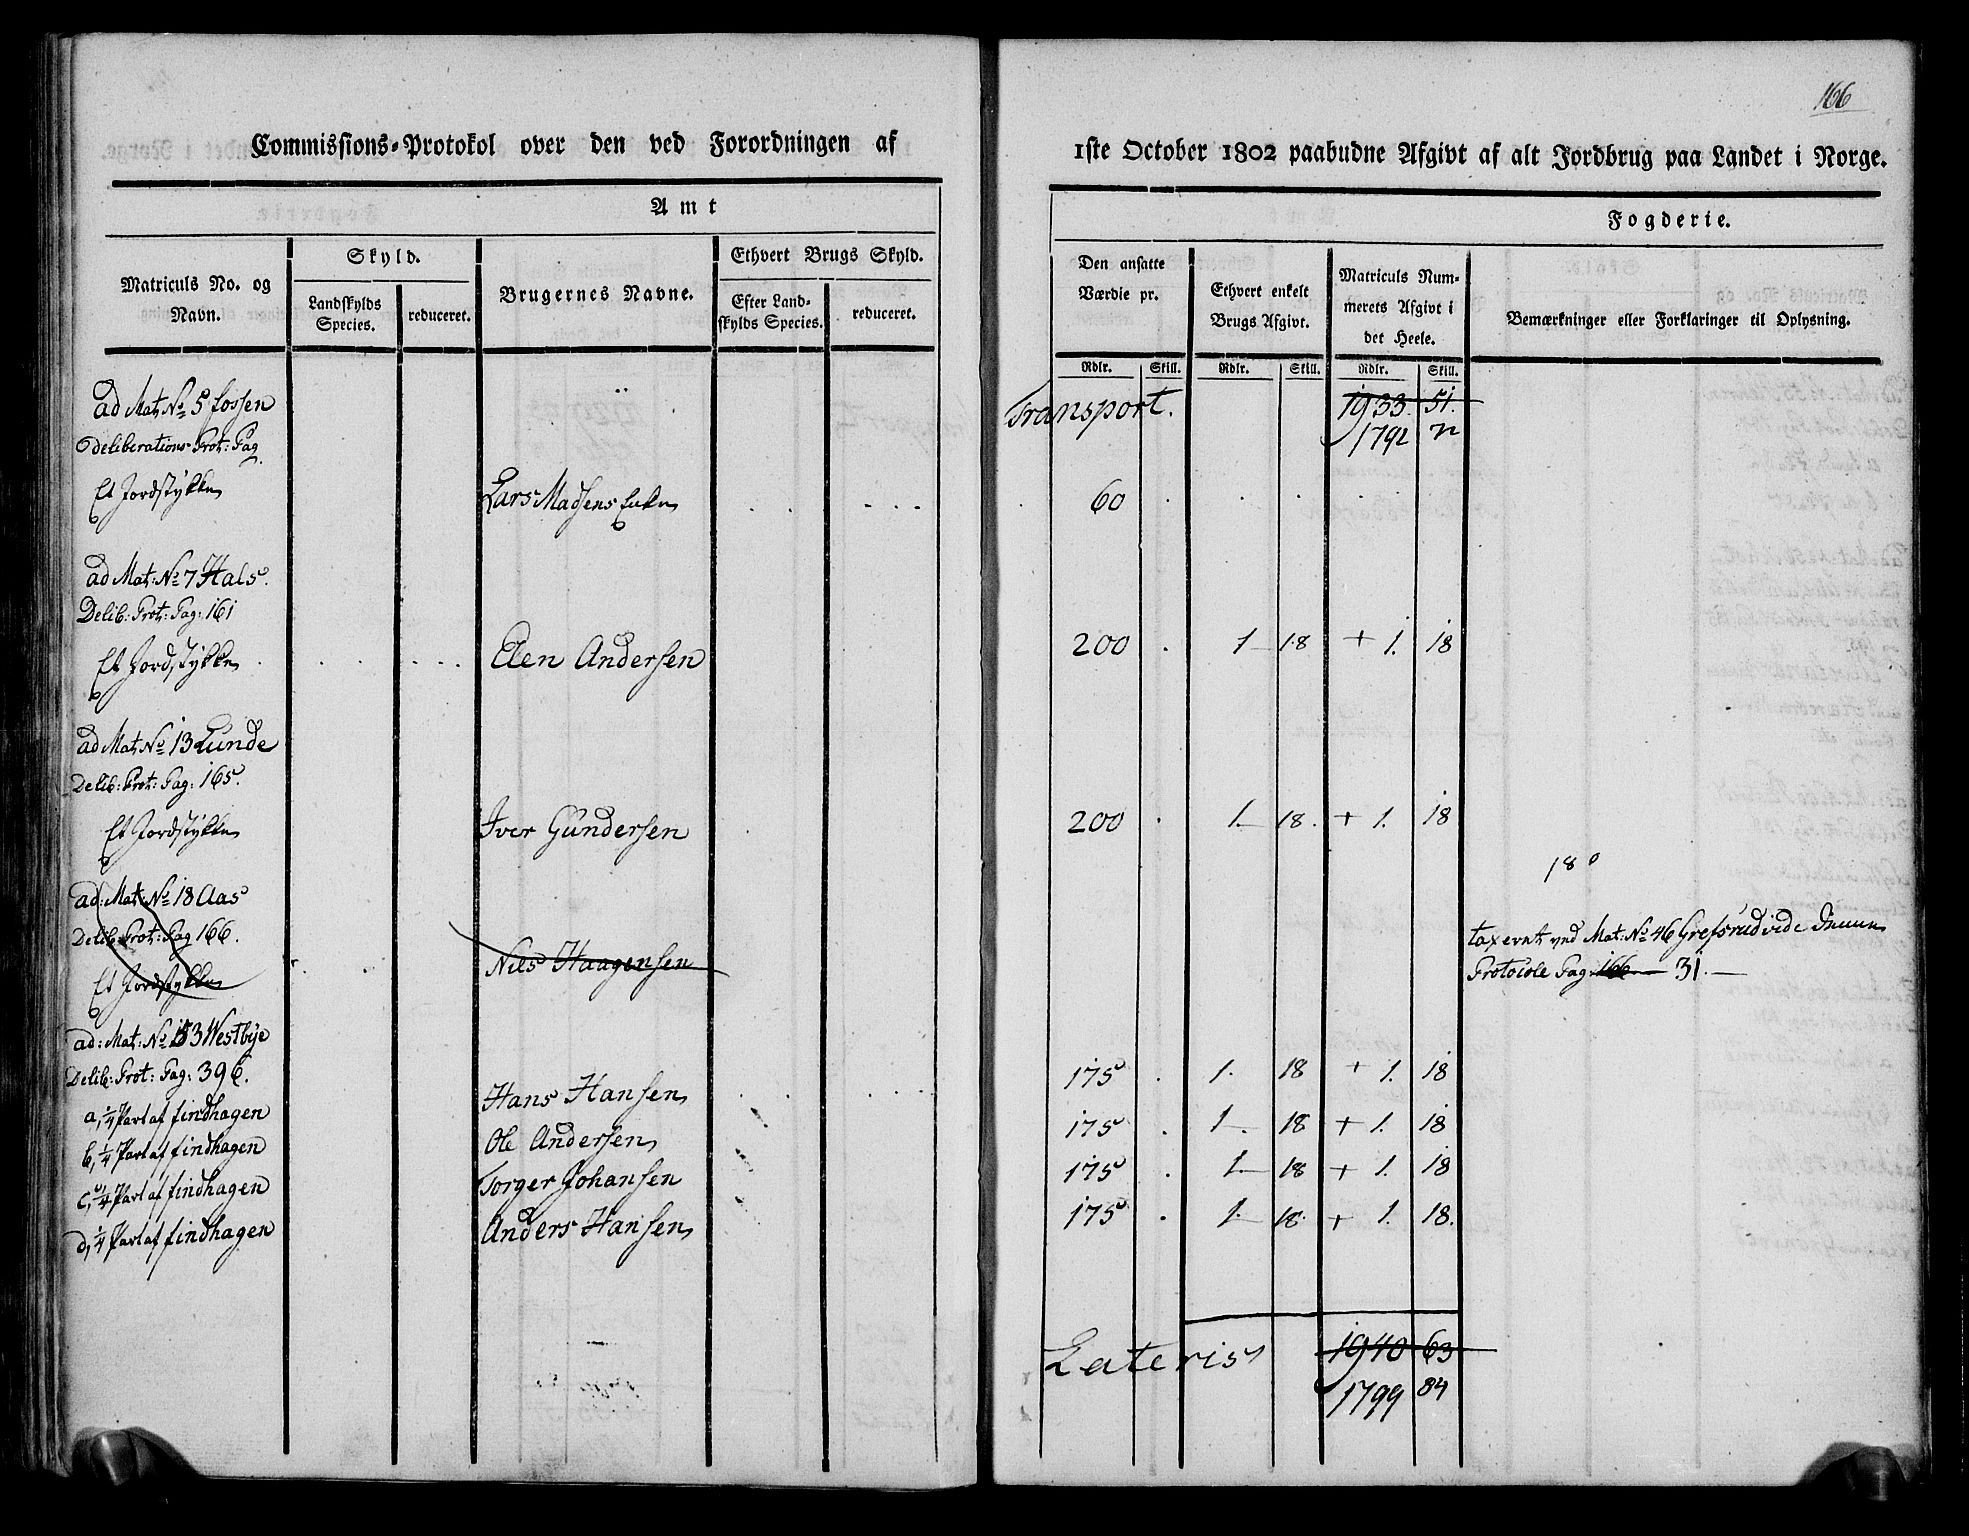 Commissions-Protokol over den ved Forordningen af
Amt
Matriculs No. og
Navn.
Skyld.
Landskylds
Species.
reduceret.
Brugernes Navne.
Ethvert Brugs Skyld.
Efter Land-
skylds Species.
reduceret.
ad Mat No 5 Fossen
deliberations Prot: Pag
Et Jordstykke
Lars Madsens Enke
ad Mat: No 7 Hals
Delib: Prot: Pag: 161
Et Jordstykke
Elen Andersen
ad Mat No 13 Lunde
Delib: Prot: Pag: 165
Et Jordstykke
Iver Gundersen
ad: Mat: No 18 Aas
Delib: Prot: Pag 166.
Et Jordstykke
Nils Haagensen
ad: Mat: No 153 Westbye
Delib: Prot: Pag: 396.
a, 1/4 Part af findhagen
Hans Hansen
b, 1/4 Part af findhagen
Ole Andersen
c, 1/4 Part af findhagen
Torger Johansen
d, 1/4 Part af findhagen
Anders Hansen
166
1ste October 1802 paabudne Afgivt af alt Jordbrug paa Landet i Norge.
Fogderie.
Den ansatte
Værdie pr.
Ethvert enkelt
Brugs Afgivt.
Matriculs Num-
merets Afgivt i
det Heele.
Bemærkninger eller Forklaringer til Oplysning.
Rdlr. Skill. Rdlr. Skill. Rdlr. Skill.
Transport. 1933. 51.
1792 72
60
200 1 18 + 1. 18
200 1. 18. + 1. 18
180
taxeret ved Mat: No 46 Grefsrud vide denne
Protocole Pag: 166 31.
175 1. 18 + 1. 18
175 1. 18 + 1. 18
175 1. 18 + 1. 18
175 1. 18. + 1. 18.
Lateris 1940 63
1799 84